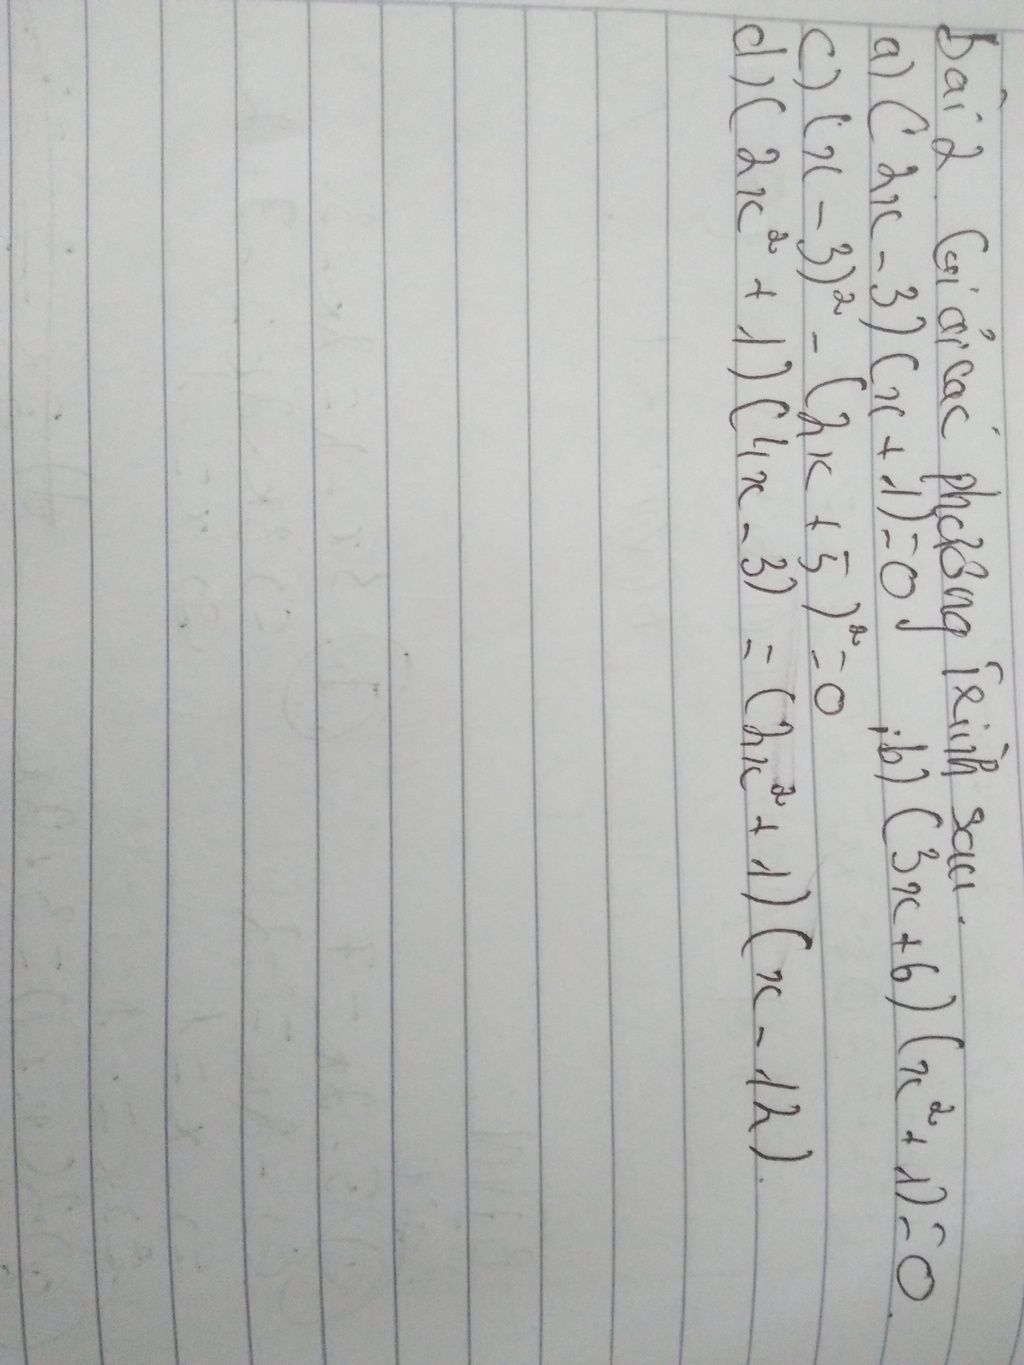 Bài 2 Giải các phương trình sau.
a) (2x - 3)(x + 1) = 0, ; b) (3x + 6)(x² + 1) = 0.
c) (x - 3)² - (2x + 5)² = 0
d) (2x² + 1)(4x - 3) = (2x² + 1)(x - 12).